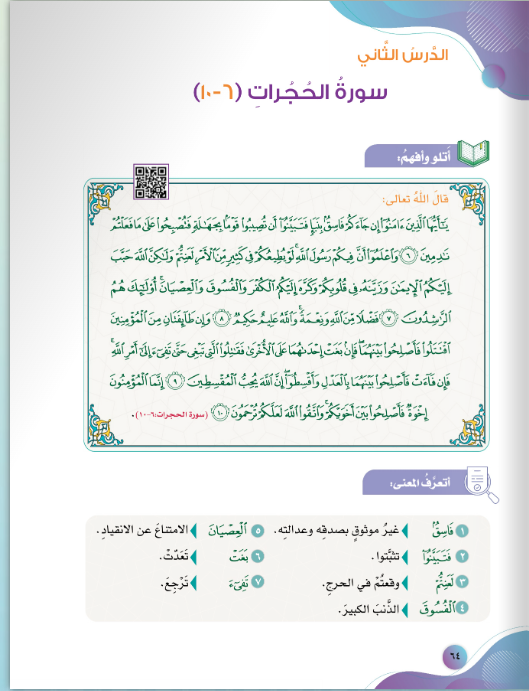 الدَّرسُ الثَّاني
سورةُ الحُجُراتِ (٦-١٠)
أتلو وأفهمُ:
قالَ اللهُ تعالى:
يَٰٓأَيُّهَا ٱلَّذِينَ ءَامَنُوٓاْ إِن جَآءَكُمۡ فَاسِقُۢ بِنَبَإٖ فَتَبَيَّنُوٓاْ أَن تُصِيبُواْ قَوۡمَۢا بِجَهَٰلَةٖ فَتُصۡبِحُواْ عَلَىٰ مَا فَعَلۡتُمۡ
نَٰدِمِينَ ٦ وَٱعۡلَمُوٓاْ أَنَّ فِيكُمۡ رَسُولَ ٱللَّهِۚ لَوۡ يُطِيعُكُمۡ فِي كَثِيرٖ مِّنَ ٱلۡأَمۡرِ لَعَنِتُّمۡ وَلَٰكِنَّ ٱللَّهَ حَبَّبَ
إِلَيۡكُمُ ٱلۡإِيمَٰنَ وَزَيَّنَهُۥ فِي قُلُوبِكُمۡ وَكَرَّهَ إِلَيۡكُمُ ٱلۡكُفۡرَ وَٱلۡفُسُوقَ وَٱلۡعِصۡيَانَۚ أُوْلَٰٓئِكَ هُمُ
ٱلرَّٰشِدُونَ ٧ فَضۡلٗا مِّنَ ٱللَّهِ وَنِعۡمَةٗۚ وَٱللَّهُ عَلِيمٌ حَكِيمٞ ٨ وَإِن طَآئِفَتَانِ مِنَ ٱلۡمُؤۡمِنِينَ
ٱقۡتَتَلُواْ فَأَصۡلِحُواْ بَيۡنَهُمَاۖ فَإِنۢ بَغَتۡ إِحۡدَىٰهُمَا عَلَى ٱلۡأُخۡرَىٰ فَقَٰتِلُواْ ٱلَّتِي تَبۡغِي حَتَّىٰ تَفِيٓءَ إِلَىٰٓ أَمۡرِ ٱللَّهِۚ
فَإِن فَآءَتۡ فَأَصۡلِحُواْ بَيۡنَهُمَا بِٱلۡعَدۡلِ وَأَقۡسِطُوٓاْۖ إِنَّ ٱللَّهَ يُحِبُّ ٱلۡمُقۡسِطِينَ ٩ إِنَّمَا ٱلۡمُؤۡمِنُونَ
إِخۡوَةٞ فَأَصۡلِحُواْ بَيۡنَ أَخَوَيۡكُمۡۚ وَٱتَّقُواْ ٱللَّهَ لَعَلَّكُمۡ تُرۡحَمُونَ ١٠ (سورة الحجرات:٦-١٠).
أتعرَّفُ المعنى:
١ فَاسِقُۢ غيرُ موثوقٍ بصدقِه وعدالتِه. ٥ ٱلۡعِصۡيَانَ الامتناعَ عن الانقيادِ.
٢ فَتَبَيَّنُوٓاْ تثبَّتوا. ٦ بَغَتۡ تَعَدّتْ.
٣ لَعَنِتُّمۡ وقعتُمْ في الحرجِ. ٧ تَفِيٓءَ تَرْجِعَ.
٤ ٱلۡفُسُوقَ الذَّنبَ الكبيرَ.
٦٤